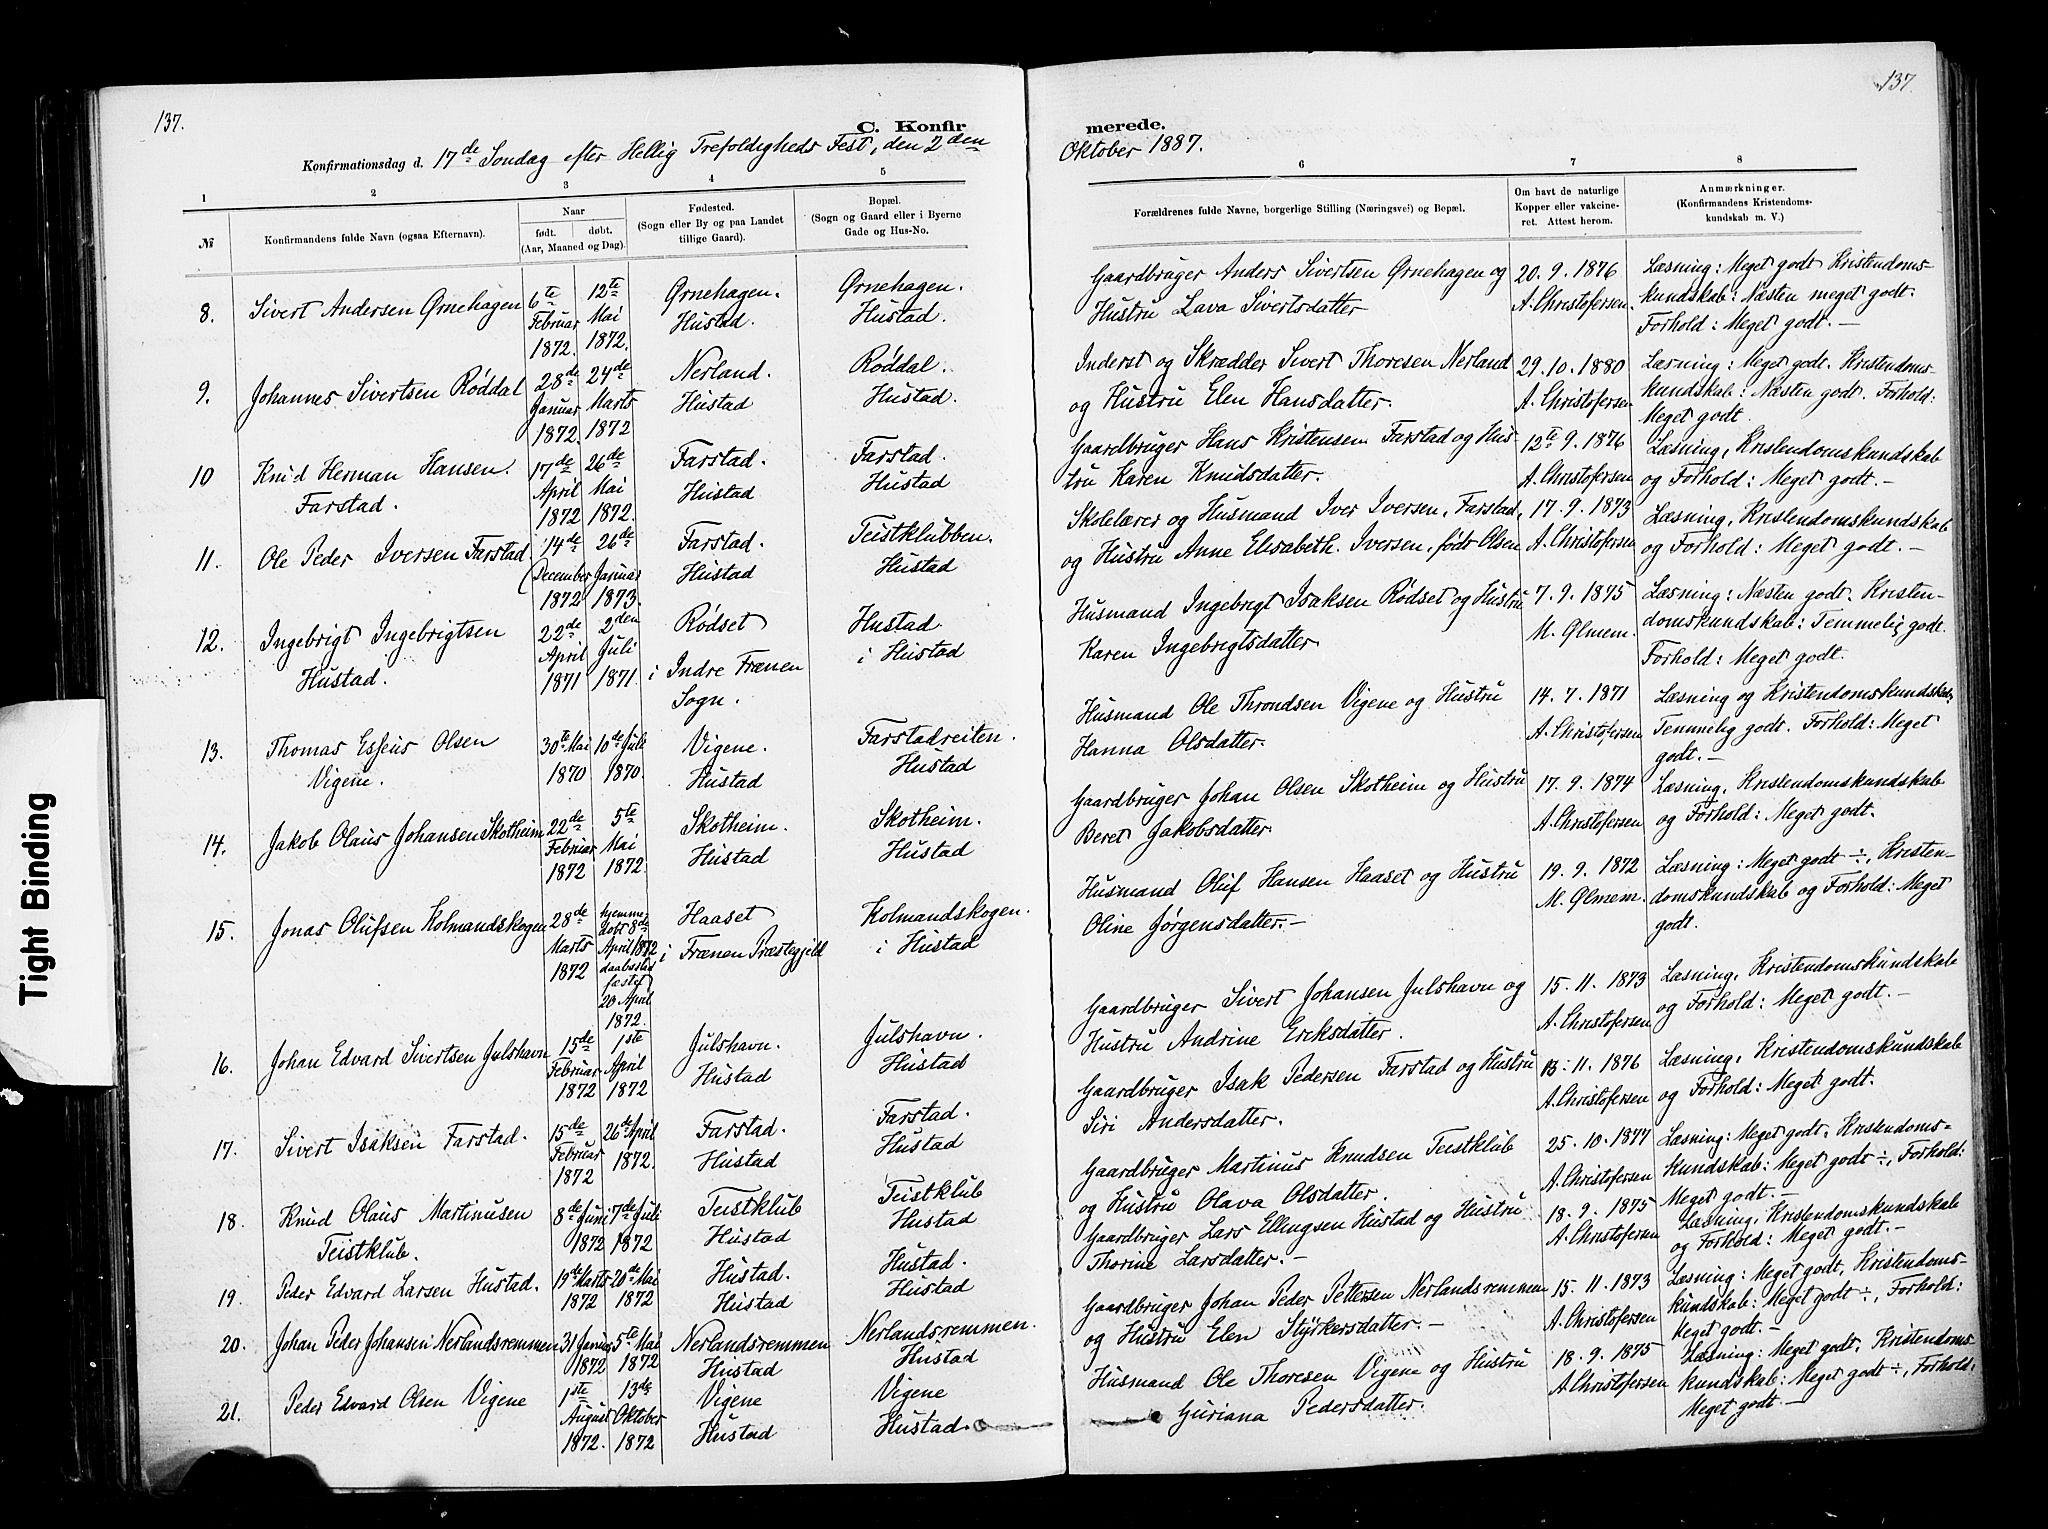 137.
137.
C. Konfir
merede.
Konfirmationsdag d. 17de Søndag efter Hellig Trefoldigheds Fest, den 2den
Oktober 1887.
1 2 3 4 5
6 7 8
№
Konfirmandens fulde Navn (ogsaa Efternavn).
Naar
født. døbt.
(Aar, Maaned og Dag).
Fødested.
(Sogn eller By og paa Landet
tillige Gaard).
Bopæl.
(Sogn og Gaard eller i Byerne
Gade og Hus-No.
Forældrenes fulde Navne, borgerlige Stilling (Næringsvei) og Bopæl.
Om havt de naturlige
Kopper eller vakcine-
ret. Attest herom.
Anmærkninger.
(Konfirmandens Kristendoms-
kundskab m. V.)
8. Sivert Andersen Ørnehagen
6te
Februar
1872.
12te
Mai
1872.
Ørnehagen.
Hustad.
Ørnehagen.
Hustad.
Gaardbruger Anders Sivertsen Ørnehagen og
Hustru Lava Sivertsdatter
20.9.1876
A. Christofersen.
Læsning: Meget godt Kristendoms-
kundskab: Næsten meget godt.
Forhold: Meget godt. —
9. Johannes Sivertsen Røddal
28de
Januar
1872.
24de
Marts
1872
Nerland.
Hustad
Røddal.
Hustad.
Inderst og Skrædder Sivert Thoresen Nerland
og Hustru Elen Hansdatter.
29.10.1880
A. Christofersen
Læsning: Meget godt. Kristendoms-
kundskab: Næsten godt. Forhold:
Meget godt.
10 Knud Herman Hansen.
Farstad.
17de
April
1872
26de
Mai
1872.
Farstad.
Hustad
Farstad.
Hustad
Gaardbruger Hans Kristensen Farstad og Hus-
tru Karen Knudsdatter.
12te 9. 1876
A. Christofersen
Læsning, Kristendomskundskab
og Forhold: Meget godt. —
11. Ole Peder Iversen Farstad
14de
December
1872
26de
Januar
1873.
Farstad.
Hustad
Teistklubben.
Hustad
Skolelærer og Husmand Iver Iversen, Farstad,
og Hustru Anne Elisabeth. Iversen, født Olsen
17.9.1873
A. Christofersen
Læsning, Kristendomskundskab
og Forhold: Meget godt. —
12. Ingebrigt Ingebrigtsen
Hustad.
22de
April
1871
2den
Juli
1871.
Rødset
i Indre Frænen
Sogn.
Hustad
i Hustad
Husmand Ingebrigt Isaksen Rødset og Hustru
Karen Ingebrigtsdatter
7.9.1875
M. Glmem.
Læsning: Næsten godt. Kristen-
domskundskab: Temmelig godt.
Forhold: Meget godt.
13. Thomas Olsen
Vigene.
30te Mai
1870
10de Juli
1870.
Vigene.
Hustad
Farstadreiten.
Hustad
Husmand Ole Throndsen Vigene og Hustru
Hanna Olsdatter.
14.7.1871
A. Christofersen
Læsning og Kristendomskundskab,
Temmelig godt. Forhold: Meget
godt. —
14. Jakob Olaus Johansen Skotheim
22de
Februar
1872
5te
Mai
1872.
Skotheim.
Hustad
Skotheim.
Hustad
Gaardbruger Johan Olsen Skotheim og Hustru
Beret Jakobsdatter.
17.9.1874
A. Christofersen
Læsning, Kristendomskundskab
og Forhold: Meget godt.
15. Jonas Olufsen Kolmandskogen
28de
Marts
1872
hjemme-
døbt 8de
April 1872
daabsstad-
fæstet
20 April
1872.
Haaset
i Frænen Præstegjeld
Kolmandskogen.
i Hustad
Husmand Oluf Hansen Haaset og Hustru
Oline Jørgensdatter. —
19.9.1872
M. Glmem.
Læsning: Meget godt ÷, Kristen-
domskundskab og Forhold: Meget
godt.
16. Johan Edvard Sivertsen Julshavn
15de
Februar
1872
1ste
April
1872
Julshavn.
Hustad
Julshavn.
Hustad
Gaardbruger Sivert Johansen Julshavn og
Hustru Andrine Eriksdatter.
15.11.1873
A. Christofersen
Læsning, Kristendomskundskab
og Forhold: Meget godt. —
17. Sivert Isaksen Farstad.
15de
Februar
1872
26de April
1872.
Farstad.
Hustad
Farstad.
Hustad
Gaardbruger Isak Pedersen Farstad og Hustru
Siri Andersdatter.
13.11.1876
A. Christofersen
Læsning, Kristendomskundskab
og Forhold: Meget godt.
18. Knud Olaus Martinusen
Teistklub.
8de Juni
1872
7de Juli
1872
Teistklub
Hustad
Teistklub
Hustad
Gaardbruger Martinus Knudsen Teistklub
og Hustru Olava Olsdatter.
25.10.1877
A. Christofersen
Læsning: Meget godt, Kristendoms-
kundskab: Meget godt ÷, Forhold:
Meget godt. —
19. Peder Edvard Larsen Hustad.
19de Marts
1872
20de Mai
1872
Hustad.
Hustad
Hustad.
Hustad
Gaardbruger Lars Ellingsen Hustad og Hustru
Thorine Larsdatter. —
18.9.1875
A. Christofersen
Læsning, Kristendomskundskab
og Forhold: Meget godt. —
20. Johan Peder Johansen Nerlandsremmen
31 Januar
1872
5te Mai
1872
Nerlandsremmen
Hustad
Nerlandsremmen.
Hustad
Gaardbruger Johan Peder Pettersen Nerlandsremmen
og Hustru Elen Styrkersdatter. —
15.11.1873
A. Christofersen
Læsning: Meget godt, Kristendoms-
kundskab: Meget godt ÷, Forhold:
Meget godt. —
21. Peder Edvard Olsen Vigene
1ste
August
1872.
13de
Oktober
1872
Vigene
Hustad
Vigene
Hustad.
Husmand Ole Thoresen Vigene og Hustru
Guriana Pedersdatter.
18.9.1875
A. Christofersen
Læsning: Meget godt, Kristendoms-
kundskab: Meget godt ÷, Forhold:
Meget godt. —
Tight Binding